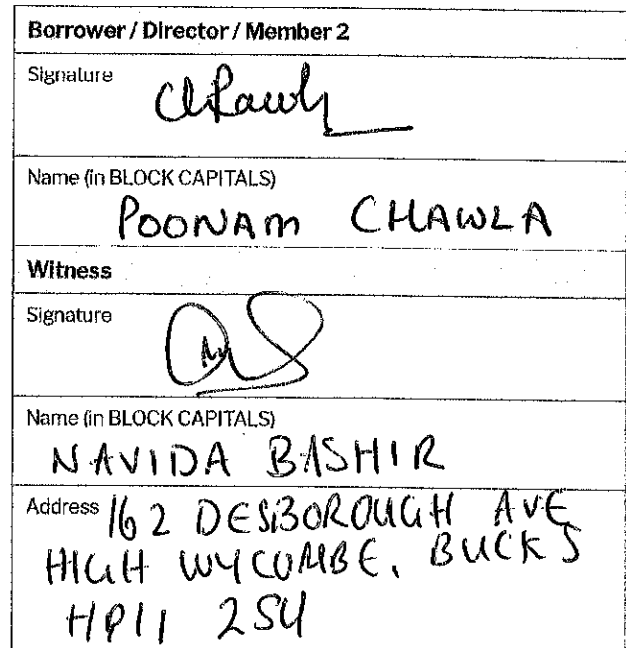 Borrower / Director / Member 2
Signature
Name (in BLOCK CAPITALS)
POONAM CHAWLA
Witness
Signature
Name (in BLOCK CAPITALS)
NAVIDA BASHIR
Address 162 DESBOROUGH AVE
HIGH WYCOMBE, BUCKS
HP11 2SU